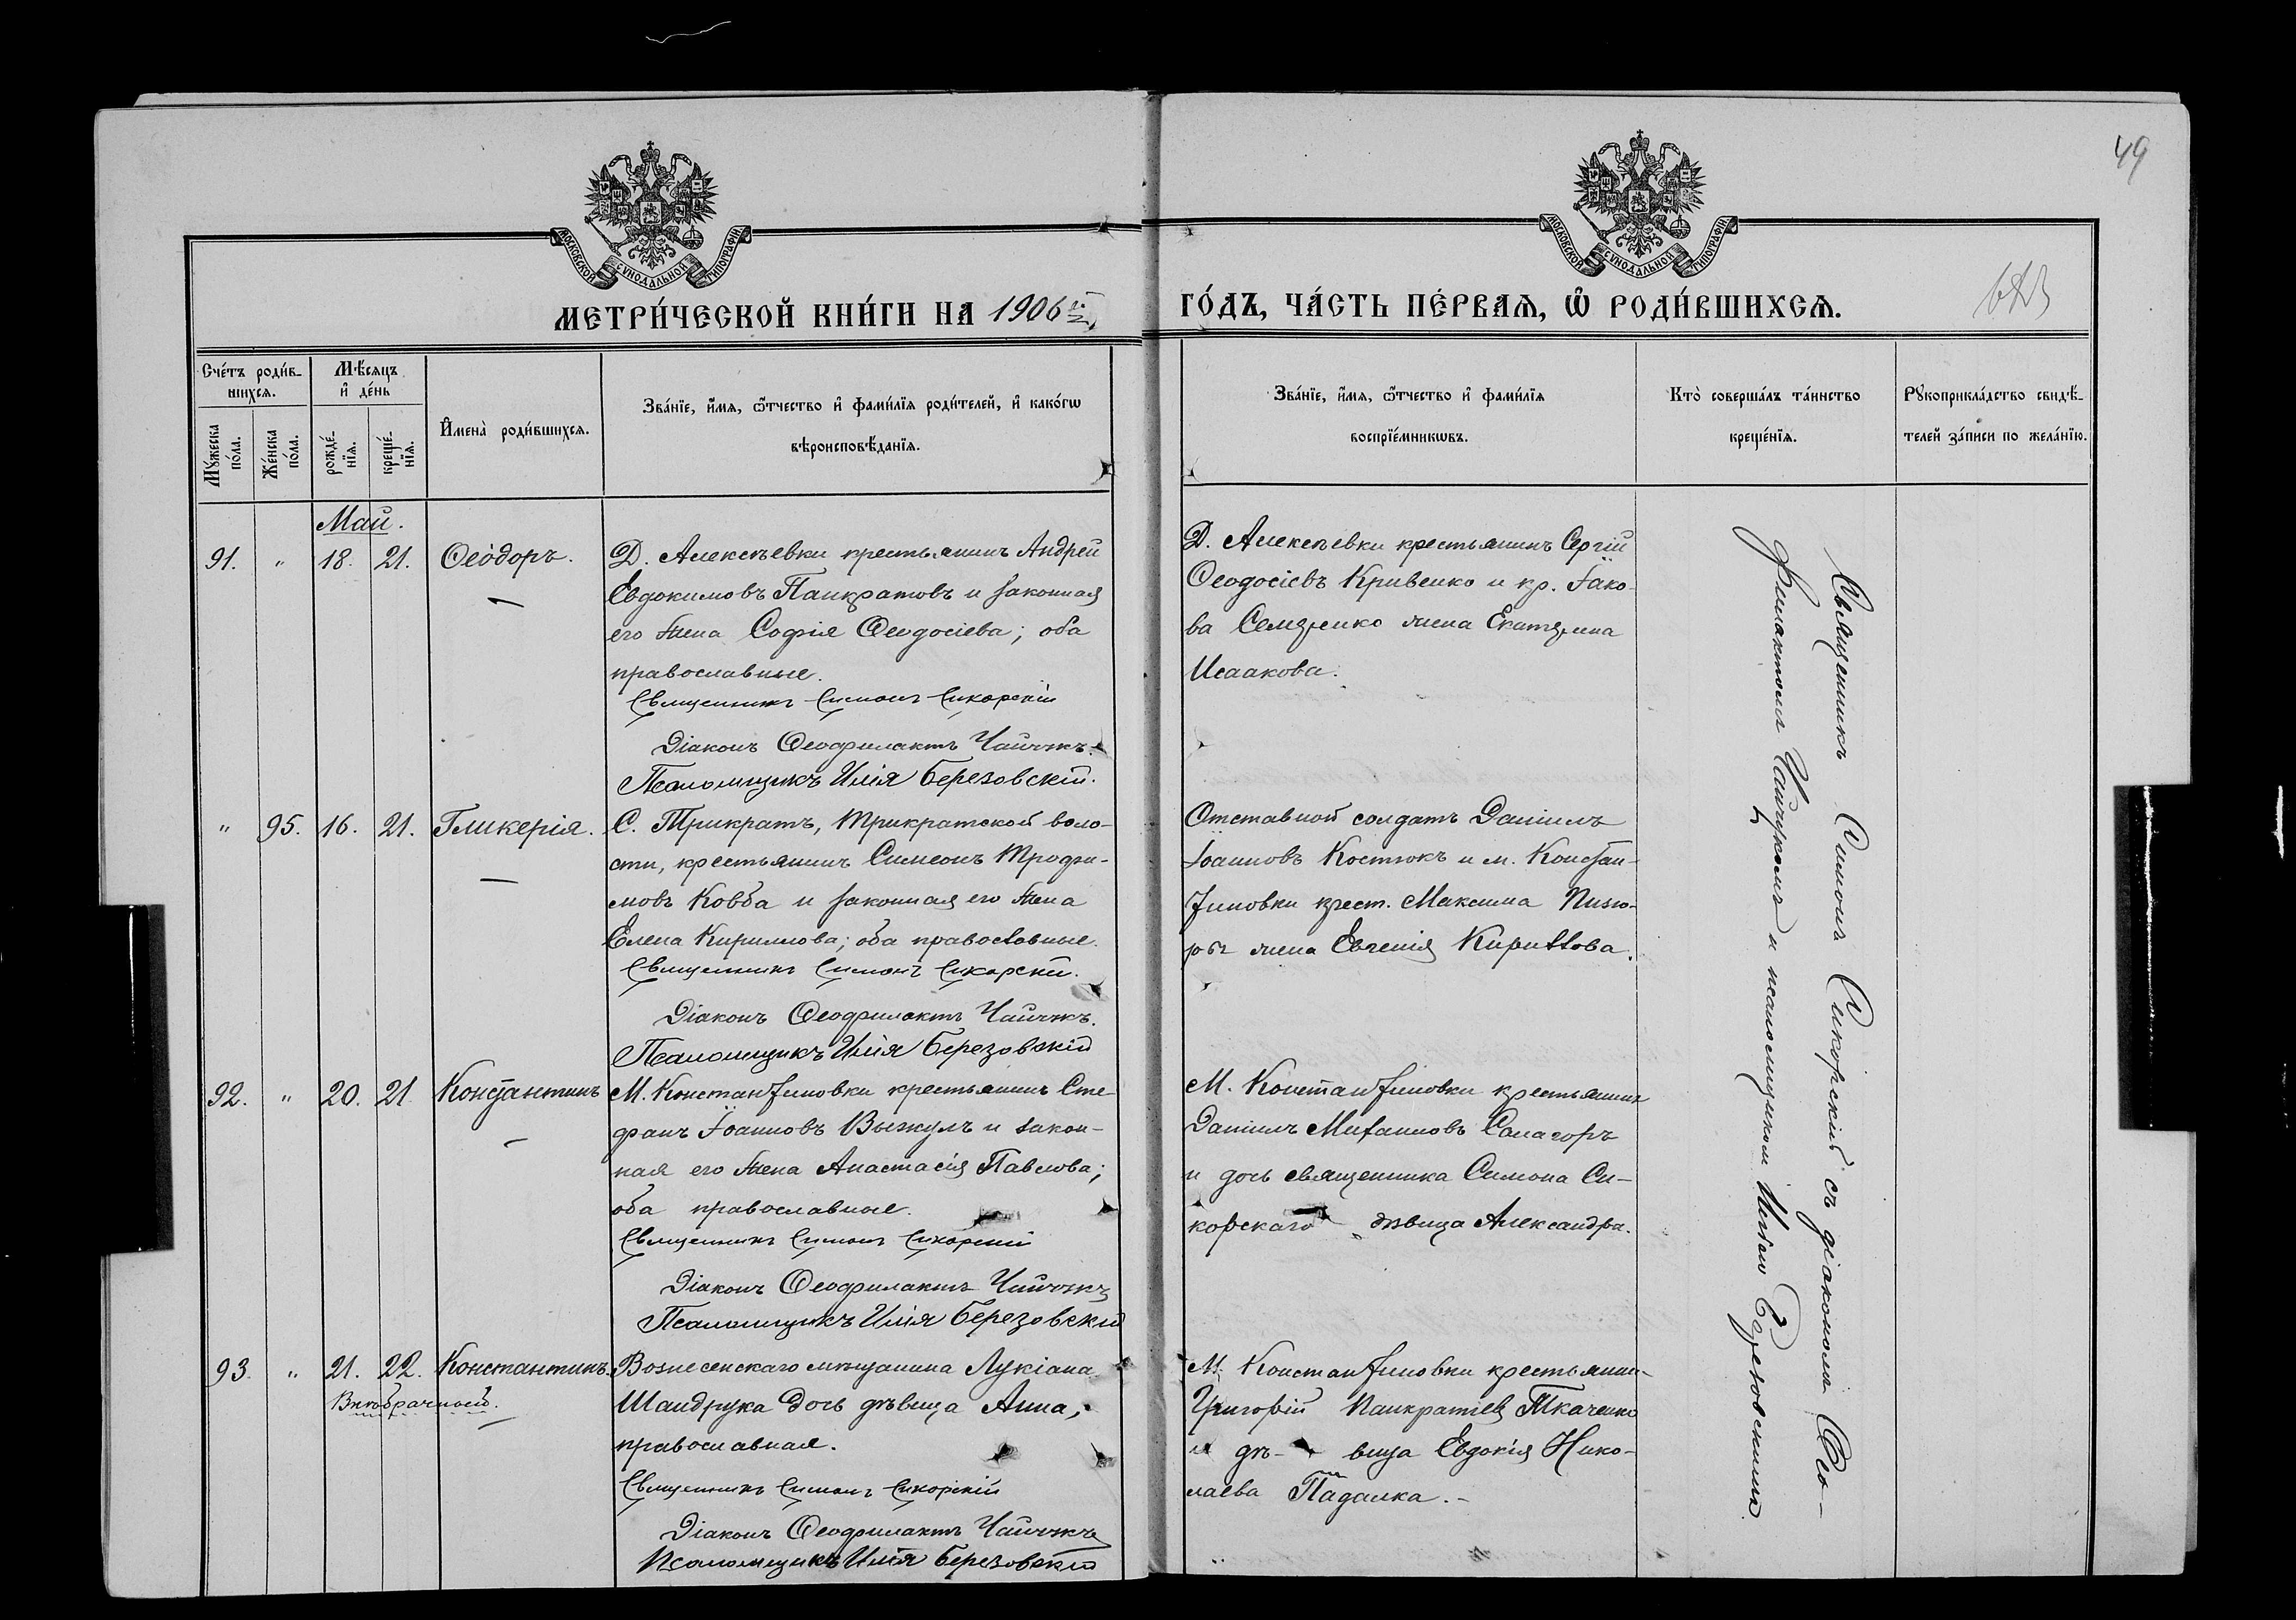 49
МОСКОВСКОЙ СѴНОДАЛЬНОЙ ТИПОГРАФІИ
МОСКОВСКОЙ СѴНОДАЛЬНОЙ ТИПОГРАФІИ
МЕТРИ́ЧЕСКОЙ КНИ́ГИ НА 1906 й
ГО́ДЪ, ЧА́СТЬ ПЕ́РВАѦ, Ѽ РОДИ́ВШИХСѦ.
Сче́тъ роди́в-
шихсѧ.
Мꙋ́жеска по́ла.
Же́нска по́ла.
Мѣ́сяцъ
и҆ де́нь
рожде́-
нїѧ.
креще́-
нїѧ.
И҆мена̀ роди́вшихсѧ.
Зва́нїе, и҆́мѧ, ѻ҆́тчество и҆ фами́лїѧ роди́телей, и҆ како́гѡ
вѣроисповѣ́данїѧ.
Зва́нїе, и҆́мѧ, ѻ҆́тчество и҆ фами́лїѧ
воспрїе́мникѡвъ.
Кто̀ соверша́лъ та́инство
креще́нїѧ.
Рꙋкоприкла́дство свидѣ́-
телей за́писи по жела́нїю.
Май.
91. " 18. 21. Ѳеодоръ.
Д. Алексѣевки крестьянинъ Андрей
Евдокимовъ Панкратовъ и законная
его жена Софія Ѳеодосіева; оба
православные.
Священникъ Симонъ Сикорскій
Діаконъ Ѳеофилактъ Чайчукъ.
Псаломщикъ Илія Березовскій.
Д. Алексѣевки крестьянинъ Сергій
Ѳеодосіевъ Кривенко и кр. Іако-
ва Семзенко жена Екатерина
Исаакова.
" 95. 16. 21. Гликерія.
С. Трикратъ, Трикратской воло-
сти, крестьянинъ Симеонъ Трофи-
мовъ Ковба и законная его жена
Елена Кириллова; оба православные.
Священникъ Симонъ Сикорскій.
Діаконъ Ѳеофилактъ Чайчукъ.
Псаломщикъ Илія Березовскій
Отставной солдатъ Даніилъ
Іоанновъ Костюкъ и м. Констан-
тиновки крест. Максима
жена Евгенія Кириллова.
92. " 20. 21 Константинъ
М. Константиновки крестьянинъ Сте-
фанъ Іоанновъ Выжулъ и закон-
ная его жена Анастасія Павлова;
оба православные.
Священникъ Симонъ Сикорскій
Діаконъ Ѳеофилактъ Чайчукъ
Псаломщикъ Илія Березовскій
М. Константиновки крестьянинъ
Даніилъ Михаиловъ Салагоръ
и дочь священника Симона Си-
корскаго дѣвица Александра.
93. " 21. 22. Константинъ.
Внѣбрачный.
Вознесенскаго мѣщанина Лукіана
Шандрука дочь дѣвица Анна,
православная.
Священникъ Симонъ Сикорскій
Діаконъ Ѳеофилактъ Чайчукъ
Псаломщикъ Илія Березовскій
М. Константиновки крестьянин-
Григорій Панкратіев Ткаченко
и дѣ- вица Евдокія Нико-
лаева Падалка.-
Священникъ Симонъ Сикорскій съ діакономъ Ѳео-
филактомъ Чайчукомъ и псаломщикомъ Иліею Березовскимъ.